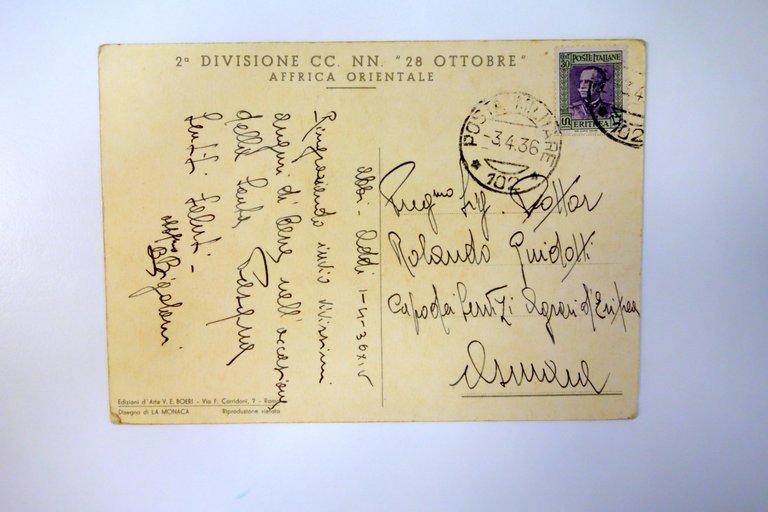 2ª DIVISIONE CC. NN. "28 OTTOBRE"
AFFRICA ORIENTALE
POSTE ITALIANE
ERITREA
POSTA MILITARE
-3.4.36
102
102
Abbi-Addi 1-4-36 XIV
Ringraziando invio vivissimi
auguri di bene nell'occasione
della Santa Pasqua
Sentiti saluti -
Preg.mo Sig. Dottor
Rolando Guidotti
Capo dei Servizi Agrari d'Eritrea
Asmara
Edizioni d'Arte V. E. BOERI - Via F. Corridoni, 7 - Roma
Disegno di LA MONACA Riproduzione vietata